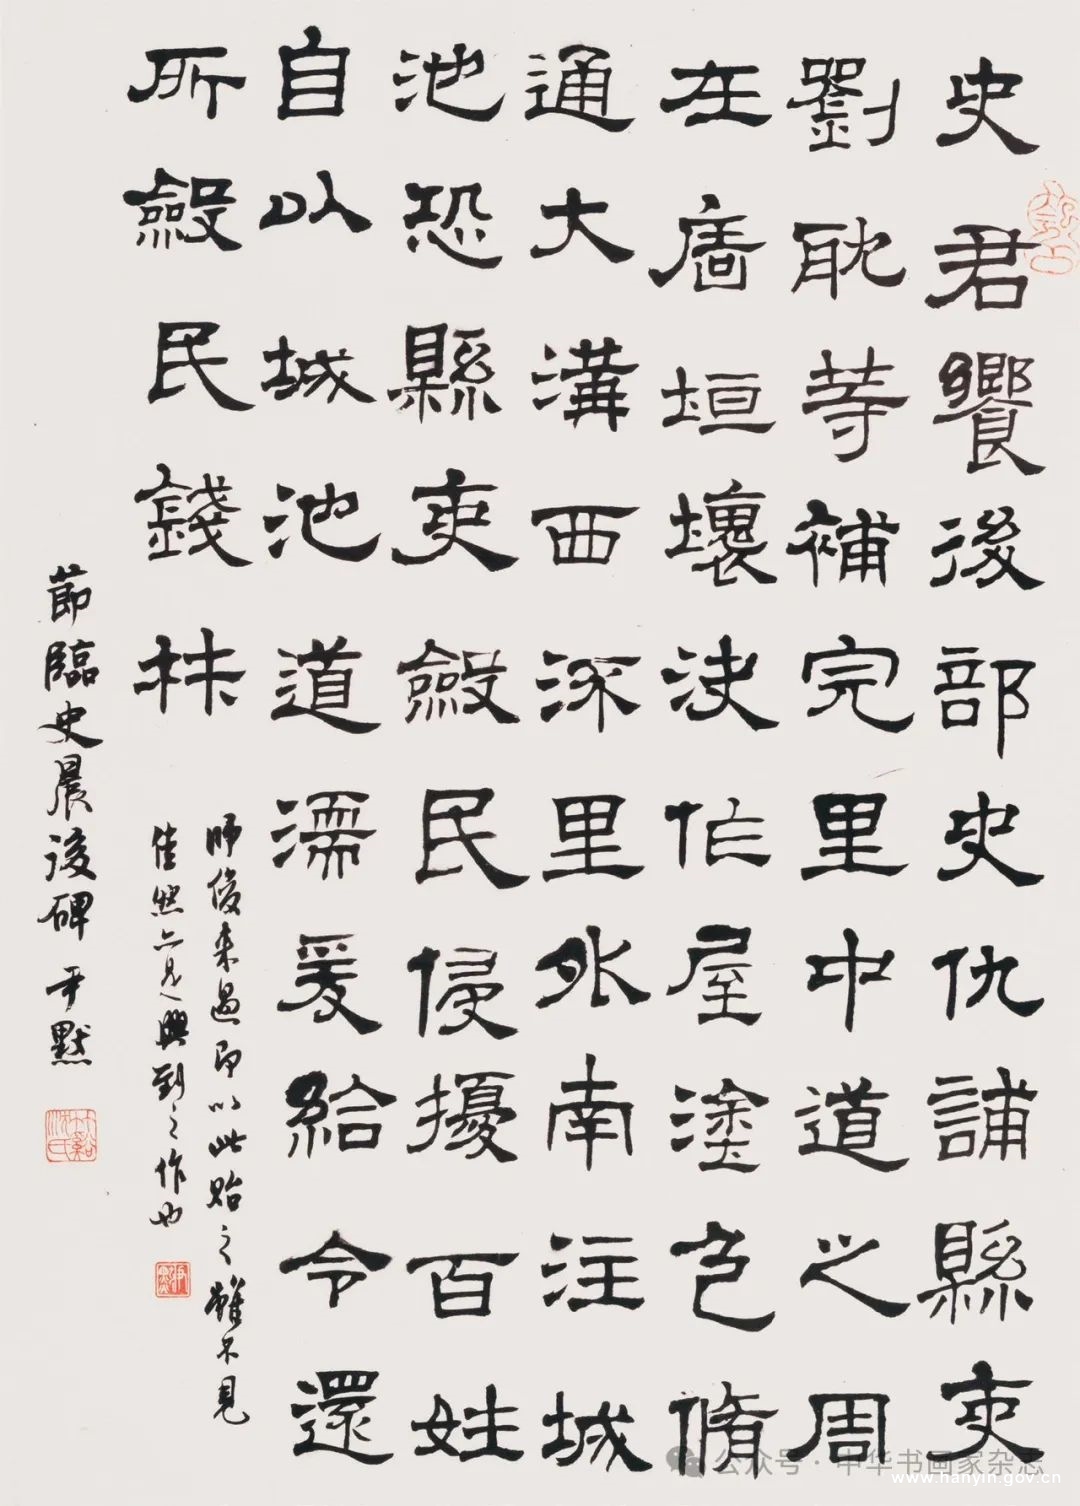 史君饗後部史仇誦縣吏
劉耽等補完里中道之周
左廧垣壞決作屋塗色脩
通大溝西流里外南注城
池恐縣吏斂民侵擾百姓
自以城池道濡麥給令還
所斂民錢材
師俊来過即以此貽之雖不見
佳然亦見興到之作也
節臨史晨後碑 尹默
竹谿沈氏
公众号·中华书画家杂志
www.hanyin.gov.cn